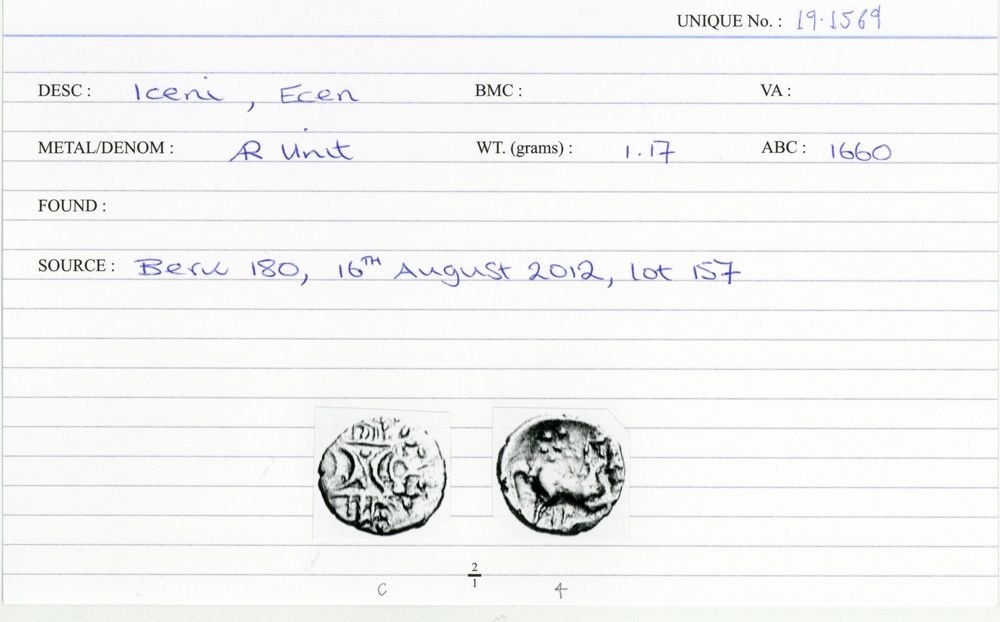 UNIQUE No. : 19.1569
DESC : Iceni, Ecen BMC : VA :
METAL/DENOM : AR Unit WT. (grams) : 1.17 ABC : 1660
FOUND :
SOURCE : Berk 180, 16TH August 2012, lot 157
2
1
C 4